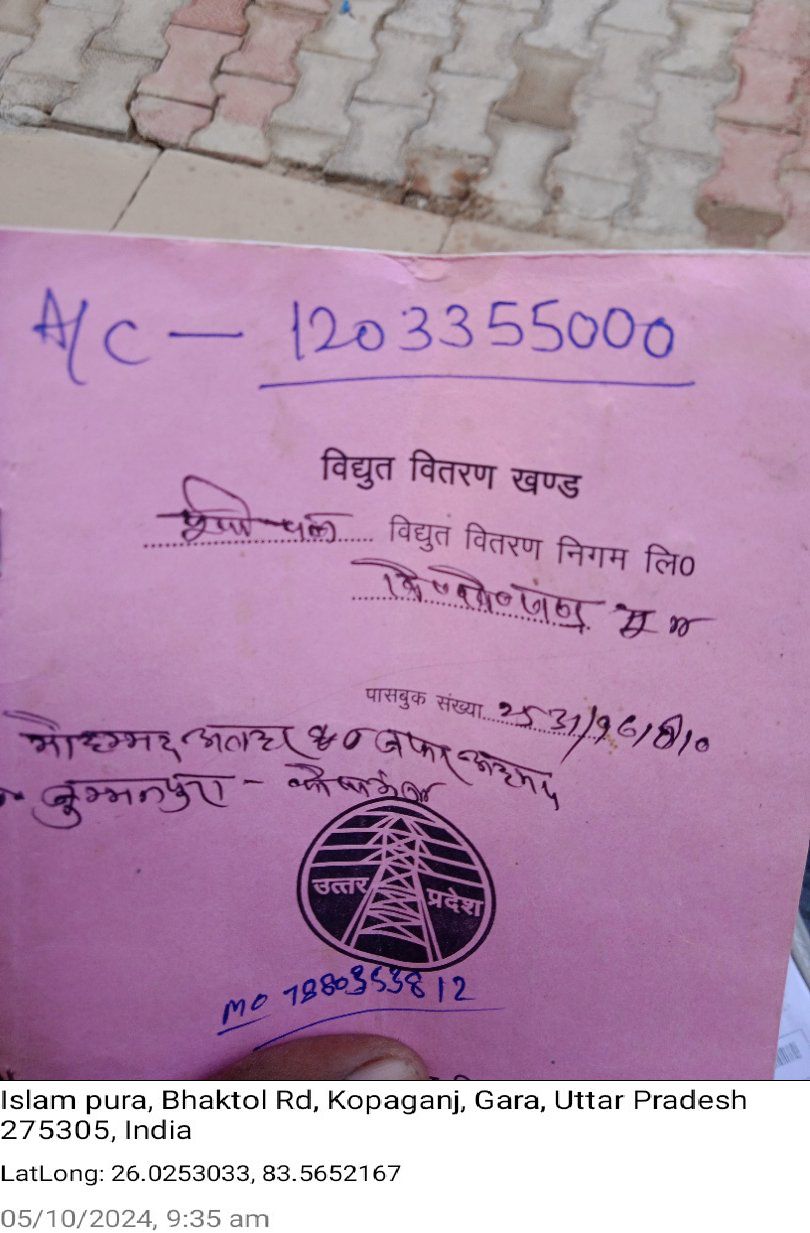 A/C - 1203355000
विद्युत वितरण खण्ड
विद्युत वितरण निगम लि०
पासबुक संख्या 2531/
मोहम्मद अतहर S० जफर अहमद
जुम्मनपुरा - कोपागंज
उत्तर प्रदेश
mo 7880353812
Islam pura, Bhaktol Rd, Kopaganj, Gara, Uttar Pradesh
275305, India
LatLong: 26.0253033, 83.5652167
05/10/2024, 9:35 am